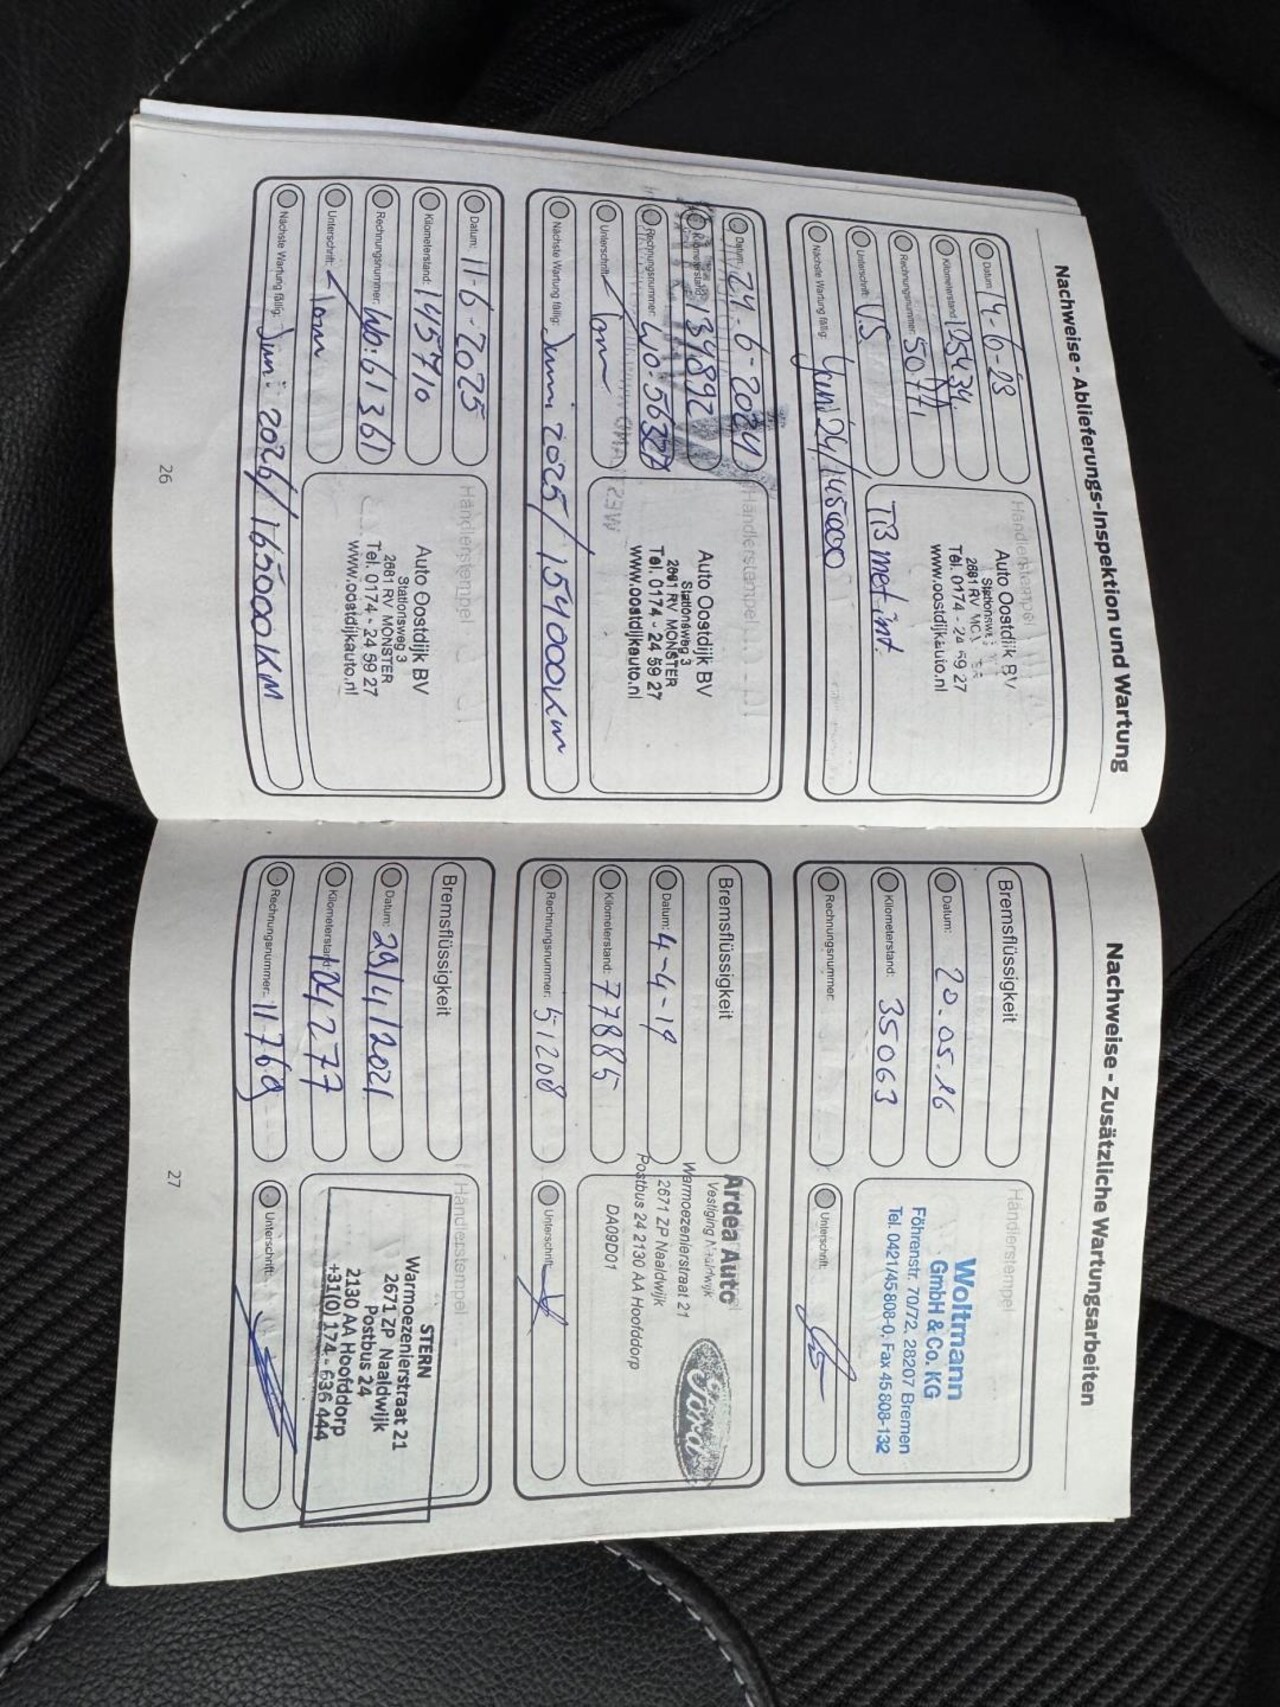 Nachweise - Ablieferungs-Inspektion und Wartung
Datum: 14-6-23
Kilometerstand: 125434
Rechnungsnummer: 50771
Unterschrift: U.S
Händlerstempel
Auto Oostdijk BV
2681 RV
Tel. 0174 - 24 59 27
www.oostdijkauto.nl
TB met int.
Nächste Wartung fällig: Juni 24/145000
Datum: 24-6-2024
Kilometerstand: 134892
Rechnungsnummer: Wo:56328
Unterschrift:
Händlerstempel
Auto Oostdijk BV
Stationsweg 3
2681 RV MONSTER
Tel. 0174 - 24 59 27
www.oostdijkauto.nl
Nächste Wartung fällig: Juni 2025/154000km
Datum: 11-6-2025
Kilometerstand: 145710
Rechnungsnummer: Wo:61361
Unterschrift:
Händlerstempel
Auto Oostdijk BV
Stationsweg 3
2681 RV MONSTER
Tel. 0174 - 24 59 27
www.oostdijkauto.nl
Nächste Wartung fällig: Juni 2026/165000KM
26
Nachweise - Zusätzliche Wartungsarbeiten
Bremsflüssigkeit
Datum: 20.05.16
Kilometerstand: 35063
Rechnungsnummer:
Händlerstempel
Woltmann
GmbH & Co. KG
Föhrenstr. 70/72, 28207 Bremen
Tel. 0421/45 808-0, Fax 45 808-132
Unterschrift:
Bremsflüssigkeit
Datum: 4-4-19
Kilometerstand: 77885
Rechnungsnummer: 51208
Ardea Auto
Vestiging Naaldwijk
Warmoezenierstraat 21
2671 ZP Naaldwijk
Postbus 24 2130 AA Hoofddorp
DA09D01
Ford
Unterschrift:
Bremsflüssigkeit
Datum: 29/4/2021
Kilometerstand: 104277
Rechnungsnummer: 11769
Händlerstempel
STERN
Warmoezenierstraat 21
2671 ZP Naaldwijk
Postbus 24
2130 AA Hoofddorp
+31(0) 174 - 636 444
Unterschrift:
27